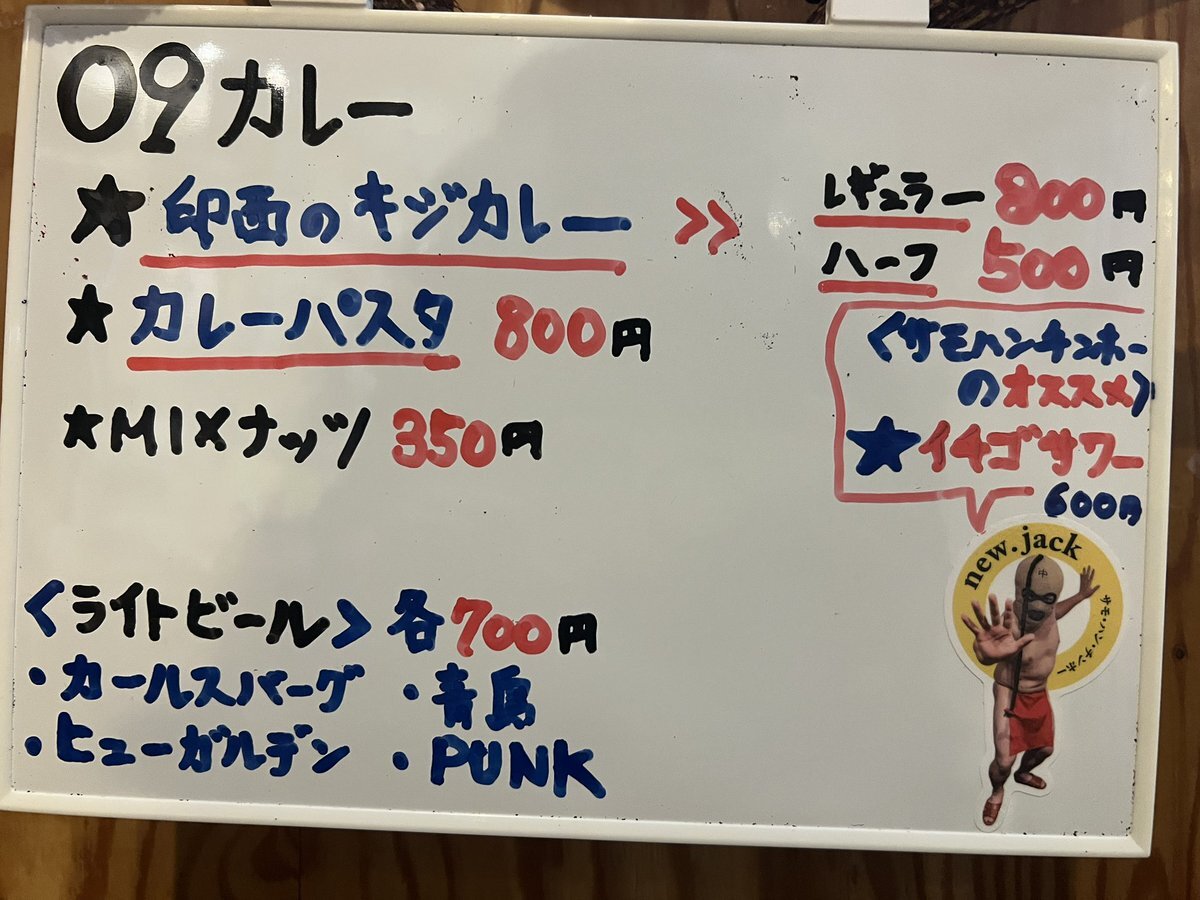 09カレー
★印西のキジカレー >> レギュラー 800円
ハーフ 500円
★カレーパスタ 800円
★MIXナッツ 350円
<サモハンチンホー
のオススメ>
★イチゴサワー
600円
<ライトビール> 各700円
・カールスバーグ ・青島
・ヒューガルデン ・PUNK
new.jack
中
サモ・ハン・チンホー